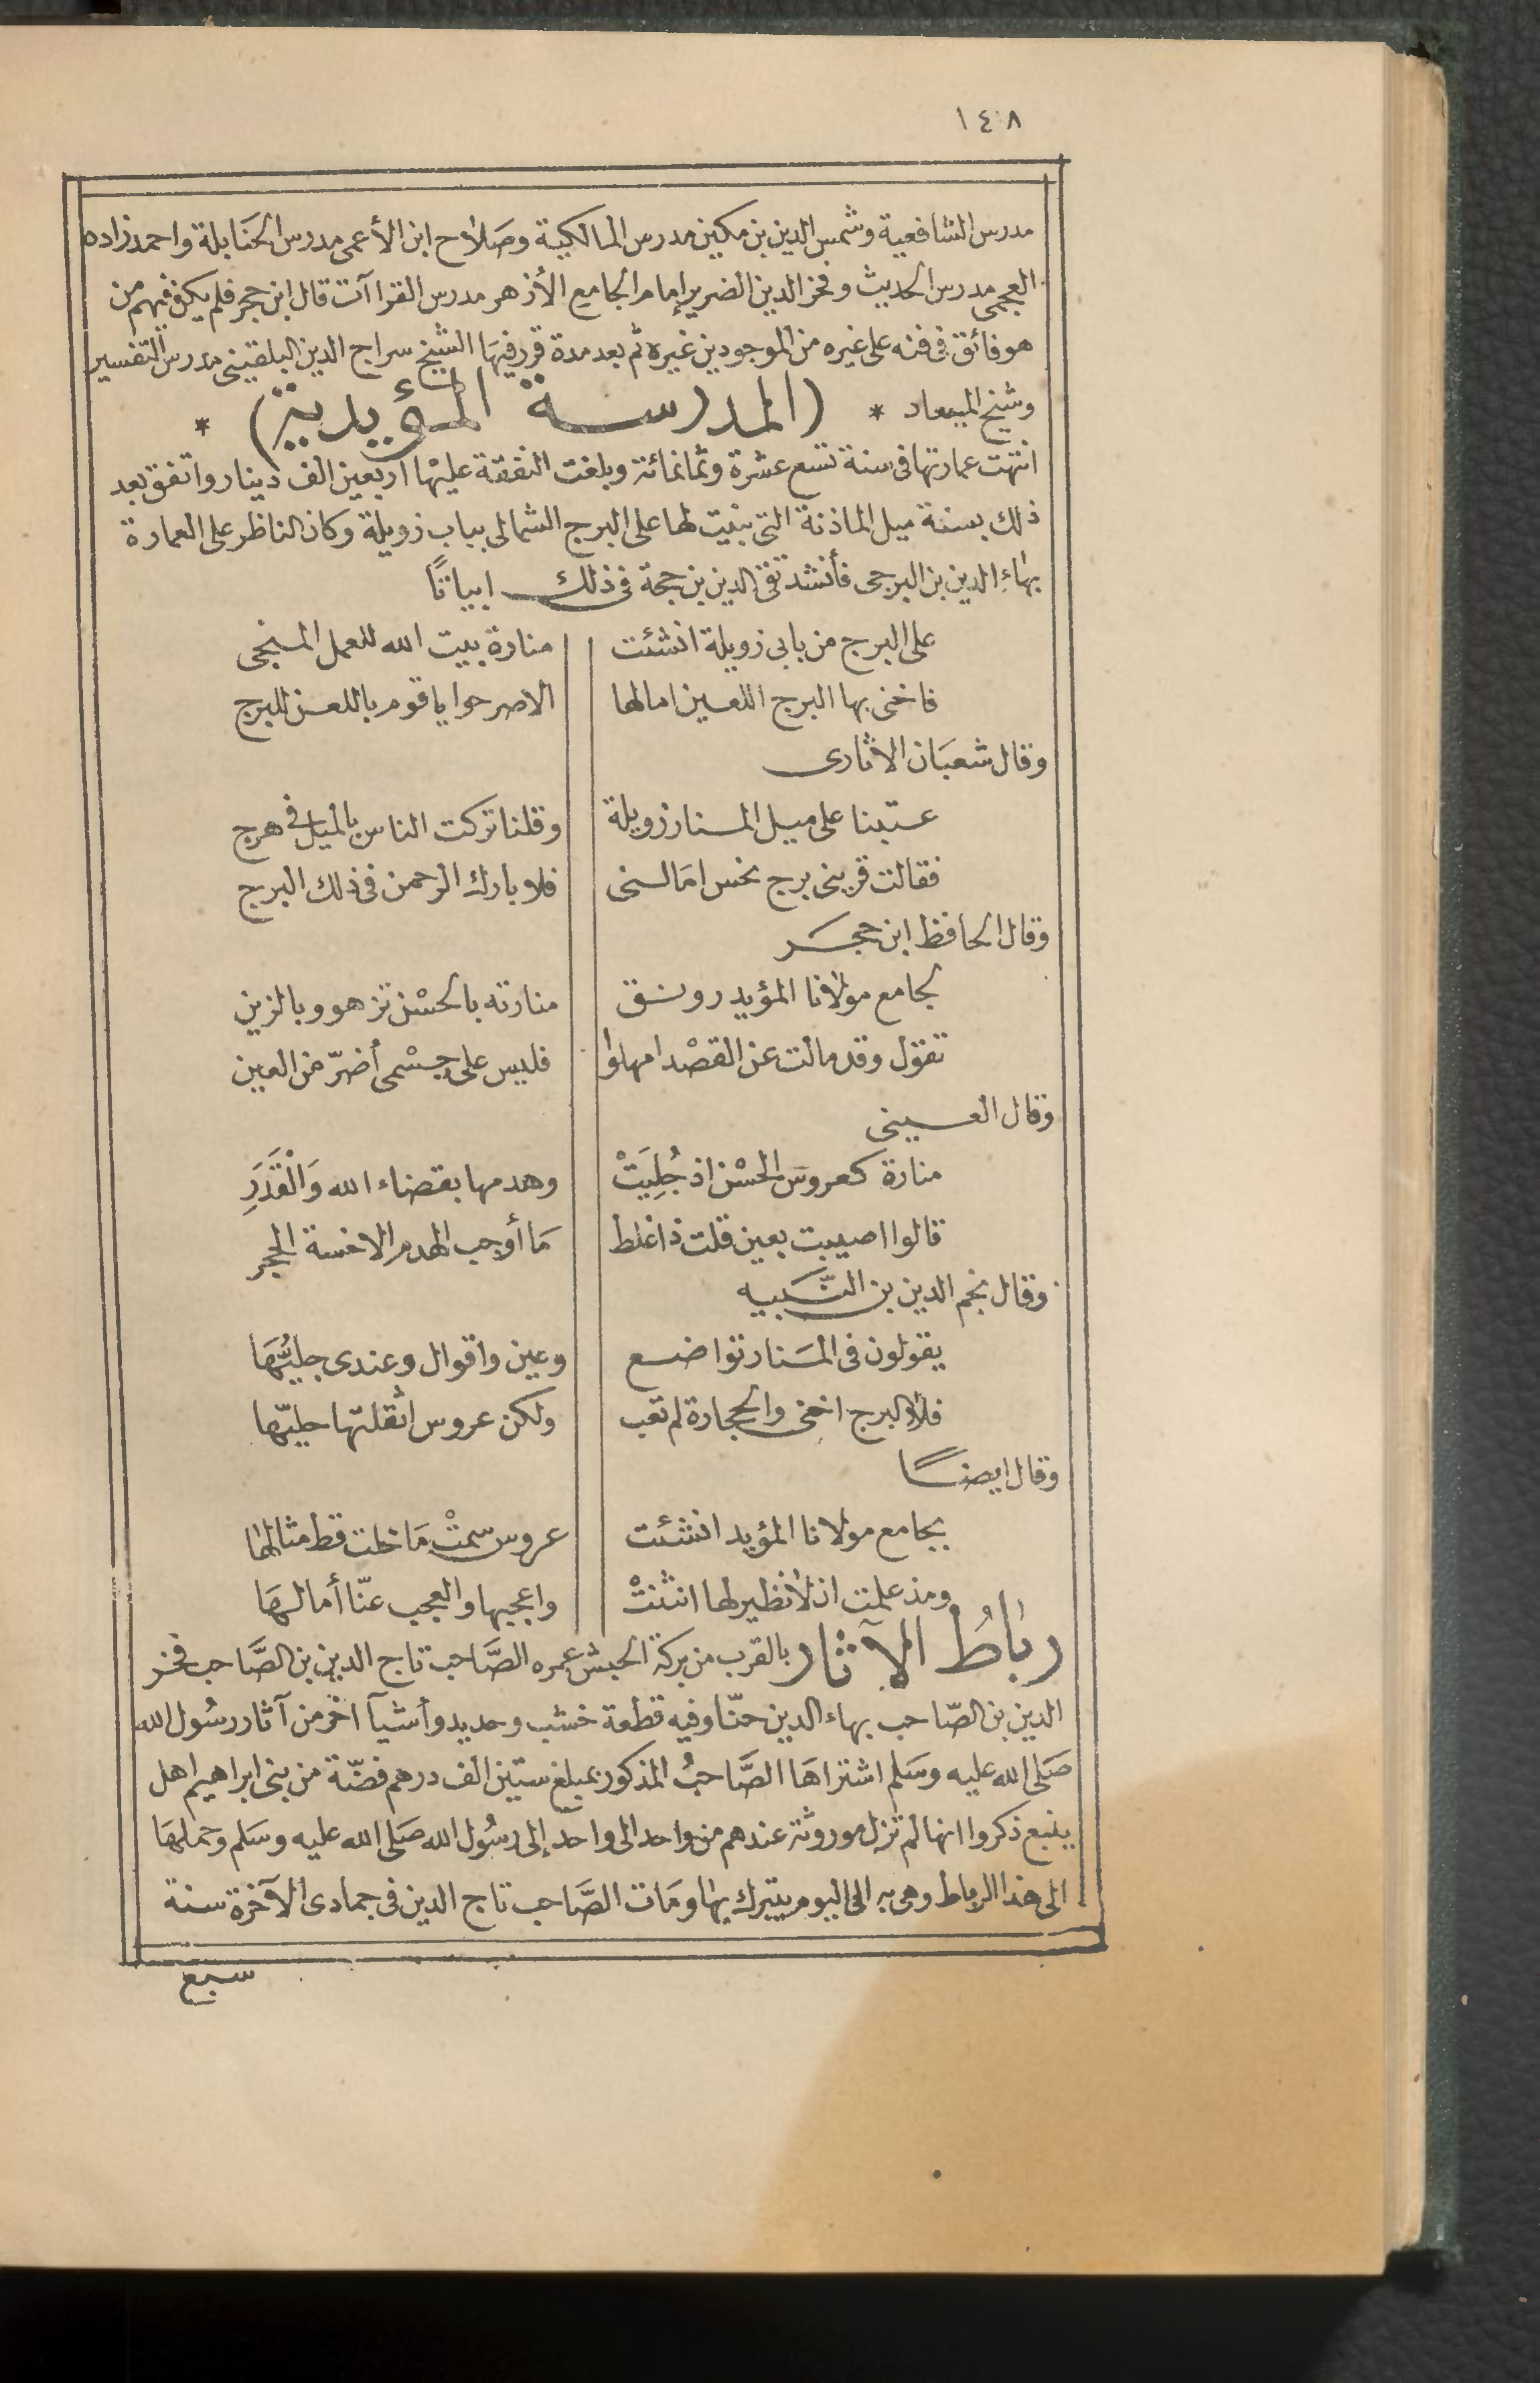 ١٤٨
مدرس الشافعية وشمس الدين بن مكين مدرس المالكية وصَلاح ابن الأعمى مدرس الحنَابلة واحمد زاده
العجمى مدرس الحديث وفخر الدين الضرير إمام الجامع الأزهر مدرس القراآت قال ابن حجر فلم يكن فيهم من
هو فائق فى فنه على غيره من الموجودين غيره ثم بعد مدة قرر فيهَا الشيخ سراج الدين البلقينى مدرس التفسير
وشيخ الميعاد * (المدرسة المؤيدية) *
انتهت عمارتها فى سنة تسع عشرة وثمانمائة وبلغت النفقة عليْها اربعين الف دينار واتفق بعد
ذلك بسنة ميل الماذنة التى بنيت لها على البرج الشمالى بباب زويلة وكان الناظر على العمارة
بهاءِ الدين بن البرجى فأنشد تقى الدين بن حجة فى ذلك ابياتًا
على البرج من بابى زويلة انشئت منارة بيت الله للعمل المنجى
فاخنى بها البرج اللعين امالها الاصرحوا ياقوم باللعن للبرج
وقال شعبَان الاثارى
عتبنا على ميل المنار زويلة وقلنا تركت الناس بالميل فى هرج
فقالت قرينى برج نحس امَالنى فلا بارك الرحمن فى ذلك البرج
وقال الحافظ ابن حجر
لجامع مولانا المؤيد رونق منارته بالحسْن تزهو وبالزين
تقول وقد مالت عن القصْد امهلوا فليس على جسْمى أضرّ من العين
وقال العينى
منارة كعروس الحسْن اذ جُلِيَتْ وهدمها بقضاء الله وَالْقَدَرِ
قالوا اصيبت بعين قلت ذا غلط مَا أوجب الهدم الا خسة الحجر
وقال نجم الدين بن النّبيه
يقولون فى المنَار تواضع وعين واقوال وعندى جليّهَا
فلا البرج اخنى والحجارة لم تعب ولكن عروس اثقلتها حليّها
وقال ايضًا
بجامع مولانا المؤيد انشئت عروس سمتْ مَا خلت قط مثالها
ومذ علمت ان لا نظير لها انثنتْ واعجبها والعجب عنّا أمالهَا
ربَاطُ الآثار بالقرب من بركة الحبش عمره الصَّاحب تاج الدين بن الصَّاحب فخر
الدين بن الصّاحب بهاء الدين حنّا وفيه قطعة خشب وحديد وأشيآ اخر من آثار رسُول الله
صَلى الله عليه وسَلم اشتراهَا الصَّاحبُ المذكور بمبلغ ستين الف درهم فضّة من بنى ابراهيم اهل
ينبع ذكروا انها لم تزل موروثة عندهم من واحد الى واحد إلى رسُول الله صَلى الله عليه وسَلم وحملهَا
الى هذا الرباط وهى به الى اليوم يتبرك بها ومَات الصَّاحب تاج الدين فى جمادى الآخرة سنة
سبع